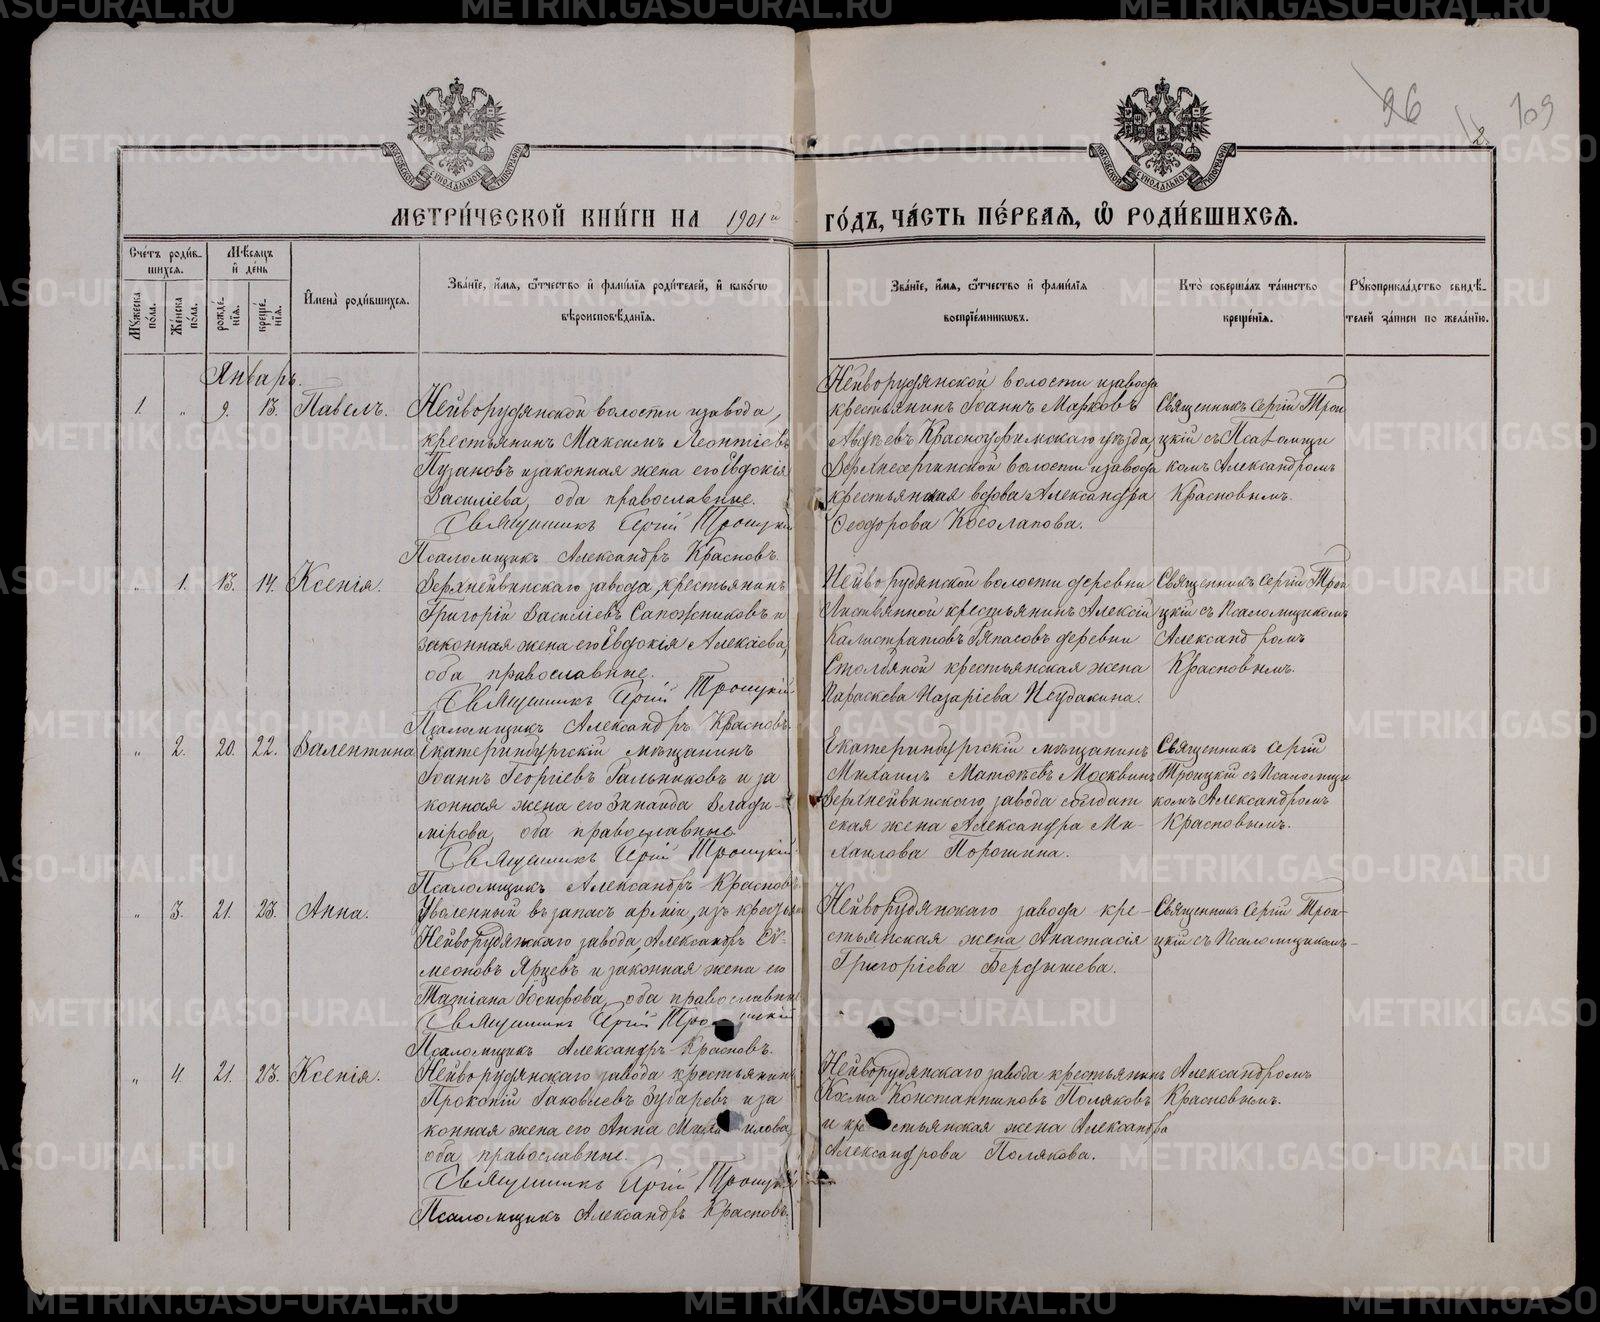 96
2
109
МЕТРИ́ЧЕСКОЙ КНИ́ГИ НА 1901й ГО́ДЪ, ЧА́СТЬ ПЕ́РВАѦ, Ѽ РОДИ́ВШИХСѦ.
Сче́тъ роди́в-
шихсѧ.
Мѣ́сѧцъ
и҆ де́нь
Мꙋ́жеска
по́ла.
Же́нска
по́ла.
рожде́-
нїѧ.
креще́-
нїѧ.
И҆мена̀ роди́вшихсѧ.
Зва́нїе, и҆́мѧ, ѻ҆́тчество и҆ фамі́лїѧ роди́телей, и҆ како́гѡ
вѣроисповѣ́данїѧ.
Зва́нїе, и҆́мѧ, ѻ҆́тчество и҆ фамі́лїѧ
воспрїе́мникѡвъ.
Кто̀ соверша́лъ та́инство
креще́нїѧ.
Рꙋкоприкла́дство свидѣ́-
телей за́писи по жела́нїю.
Январь.
1. „ 9. 13. Павелъ.
Нейворудянской волости и завода,
крестьянинъ Максимъ Леонтіевъ
Пузановъ и законная жена его Евдокія
Василіева, оба православные.
Священникъ Сергій Троицкій
Псаломщикъ Александръ Красновъ.
Нейворудянской волости и завода
крестьянинъ Іоаннъ Марковъ
Авдѣевъ Красноуфимскаго уѣзда,
Верхнесергинской волости и завода
крестьянская вдова Александра
Ѳеодорова Косолапова.
Священникъ Сергій Трои
цкій съ Псаломщи
комъ Александромъ
Красновымъ.
„ 1. 13. 14. Ксенія.
Верхнейвинскаго завода, крестьянинъ
Григорій Василіевъ Сапожниковъ и
законная жена его Евдокія Алексѣева,
оба православные.
Священникъ Сергій Троицкій
Псаломщикъ Александръ Красновъ.
Нейворудянской волости деревни
Листвянной крестьянинъ Алексій
Калистратовъ Ряпасовъ деревни
Столбяной крестьянская жена
Параскева Назаріева Неудакина.
Священникъ Сергій Трои
цкій съ Псаломщикомъ
Александромъ
Красновымъ.
„ 2. 20. 22. Валентина
Екатеринбургскій мѣщанинъ
Іоаннъ Георгіевъ Гальниковъ и за
конная жена его Зинаида Влади-
мірова, оба православные
Священникъ Сергій Троицкій
Псаломщикъ Александръ Красновъ.
Екатеринбургскій мѣщанинъ
Михаилъ Матѳѣевъ Москвинъ
Верхнейвинскаго завода солдат
ская жена Александра Ми-
хаилова Порошина.
Священникъ Сергій
Троицкій съ Псаломщи
комъ Александромъ
Красновымъ.
„ 3. 21. 23. Анна.
Уволенный въ запасъ арміи, изъ крестьянъ
Нейворудянскаго завода, Александръ Си-
меоновъ Ярцевъ и законная жена его
Татіана Іосифова, оба православные
Священникъ Сергій Троицкій
Псаломщикъ Александръ Красновъ.
Нейворудянскаго завода кре-
стьянская жена Анастасія
Григоріева Бердышева.
Священникъ Сергій Трои-
цкій съ Псаломщикомъ-
„ 4. 21. 23. Ксенія.
Нейворудянскаго завода крестьянинъ
Прокопій Іаковлевъ Зубаревъ и за
конная жена его Анна Михаилова,
оба православные.
Священникъ Сергій Троицкій
Псаломщикъ Александръ Красновъ.
Нейворудянскаго завода крестьянинъ
Косма Константиновъ Поляковъ
и крестьянская жена Александра
Александрова Полякова.
Александромъ
Красновымъ.